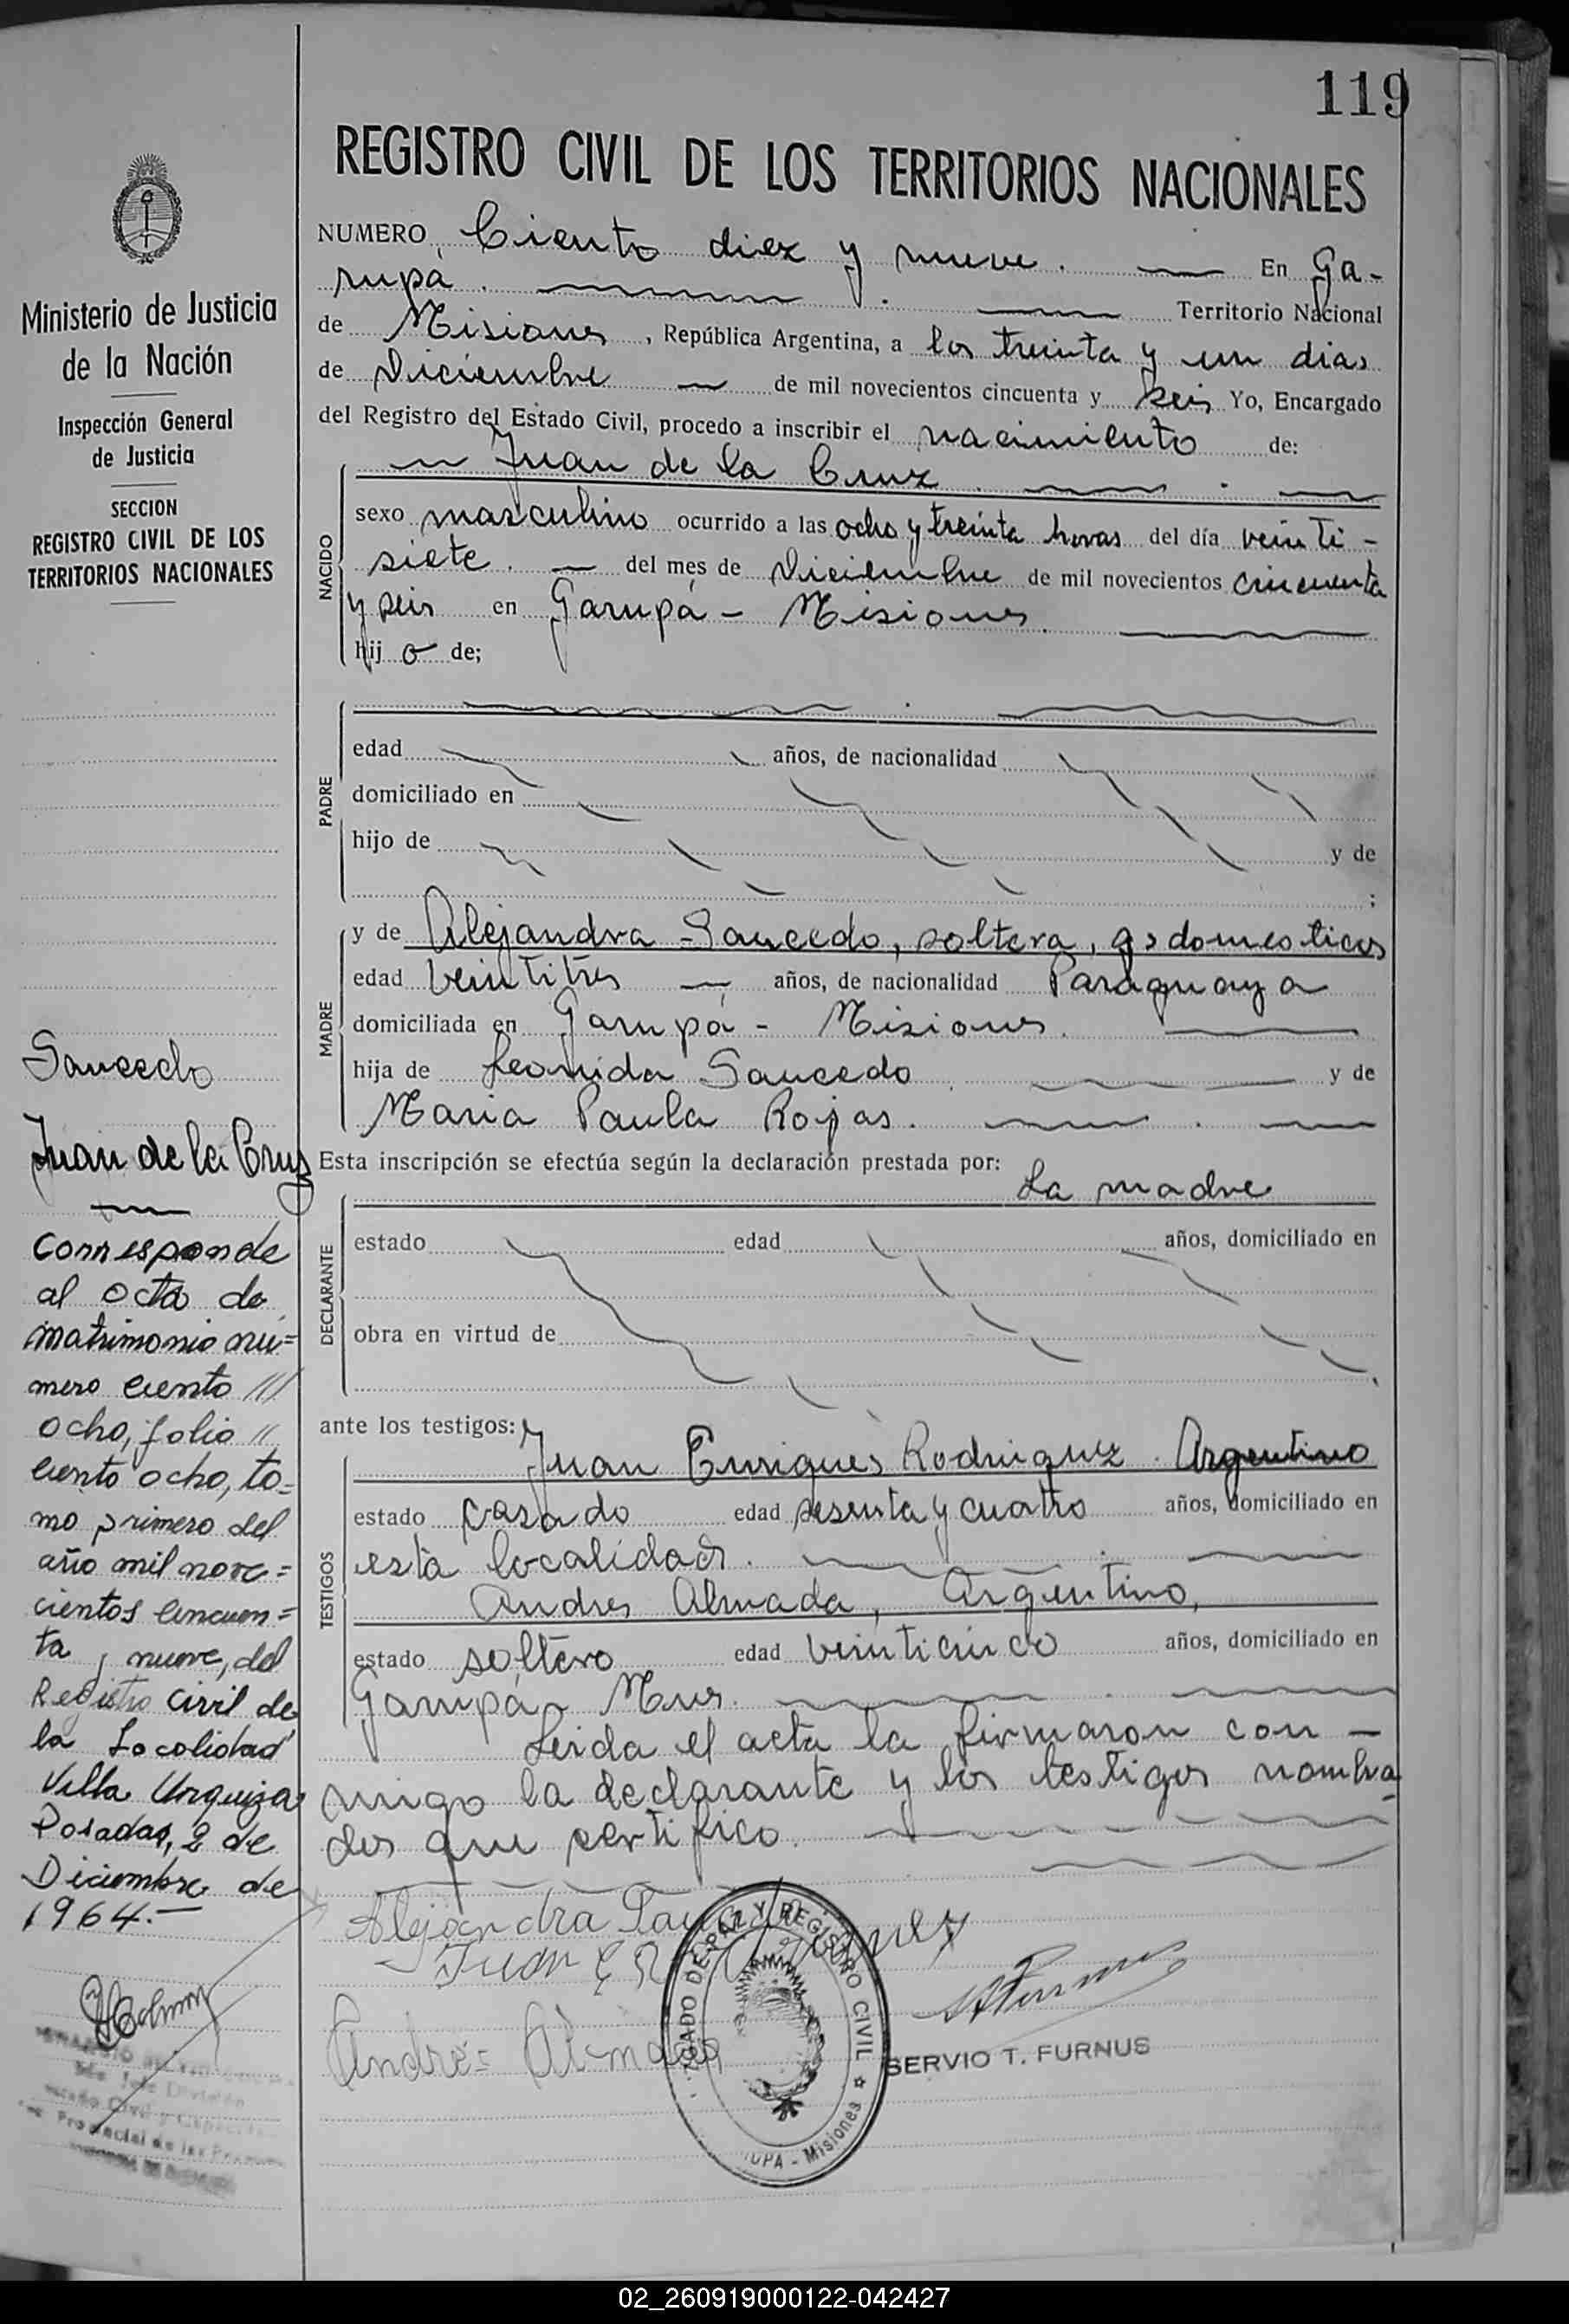 119
REGISTRO CIVIL DE LOS TERRITORIOS NACIONALES
NUMERO Ciento diez y nueve. En Ga-
rupá. Territorio Nacional
de Misiones, República Argentina, a los treinta y un dias
de Diciembre de mil novecientos cincuenta y seis Yo, Encargado
del Registro del Estado Civil, procedo a inscribir el nacimiento de:
Juan de la Cruz.
NACIDO
sexo masculino ocurrido a las ocho y treinta horas del día veinti-
siete. del mes de Diciembre de mil novecientos cincuenta
y seis en Garupá - Misiones.
hijo de;
PADRE
edad años, de nacionalidad
domiciliado en
hijo de y de
;
MADRE
y de Alejandra Saucedo, soltera, qs domesticos
edad veintitres años, de nacionalidad Paraguaya
domiciliada en Garupá - Misiones.
hija de Leonida Saucedo y de
Maria Paula Rojas.
Esta inscripción se efectúa según la declaración prestada por:
La madre
DECLARANTE
estado edad años, domiciliado en
obra en virtud de
ante los testigos:
Juan Enriques Rodriguez. Argentino
TESTIGOS
estado casado edad sesenta y cuatro años, domiciliado en
esta localidad.
Andres Almada, Argentino,
estado soltero edad veinticinco años, domiciliado en
Garupá Mnes.
Leida el acta la firmaron con-
migo la declarante y los testigos nombra-
dos que certifico.
Alejandra Saucedo
Juan E R
Andrés Almada
SERVIO T. FURNUS
JUZGADO DE PAZ Y REGISTRO CIVIL
UPA - Misiones
Ministerio de Justicia
de la Nación
Inspección General
de Justicia
SECCION
REGISTRO CIVIL DE LOS
TERRITORIOS NACIONALES
Saucedo
Juan de la Cruz
Corresponde
al acta de
matrimonio nú=
mero ciento ///
ocho, folio //
ciento ocho, to=
mo primero del
año mil nove=
cientos cincuen=
ta y nueve, del
Registro Civil de
la Localidad
Villa Urquiza
Posadas, 2 de
Diciembre de
1964.-
02_260919000122-042427